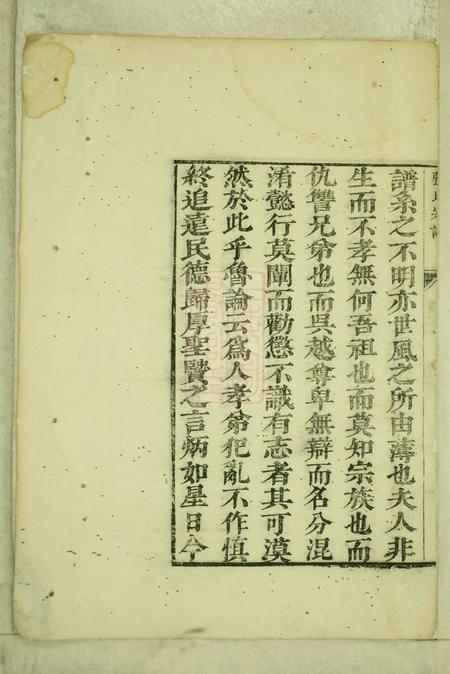 譜系之不明亦世風之所由薄也夫人非
生而不孝無何吾祖也而莫知宗族也而
仇讐兄弟也而吳越尊卑無辯而名分混
淆懿行莫闡而勸懲不識有志者其可漠
然於此乎魯論云爲人孝弟犯亂不作慎
終追遠民德歸厚聖賢之言炳如星日今